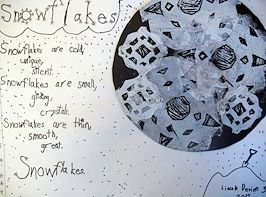 Snowflakes
Snowflakes are cold,
unique,
silent.
Snowflakes are small,
icy,
crystals.
Snowflakes are thin,
smooth,
great.
Snowflakes.